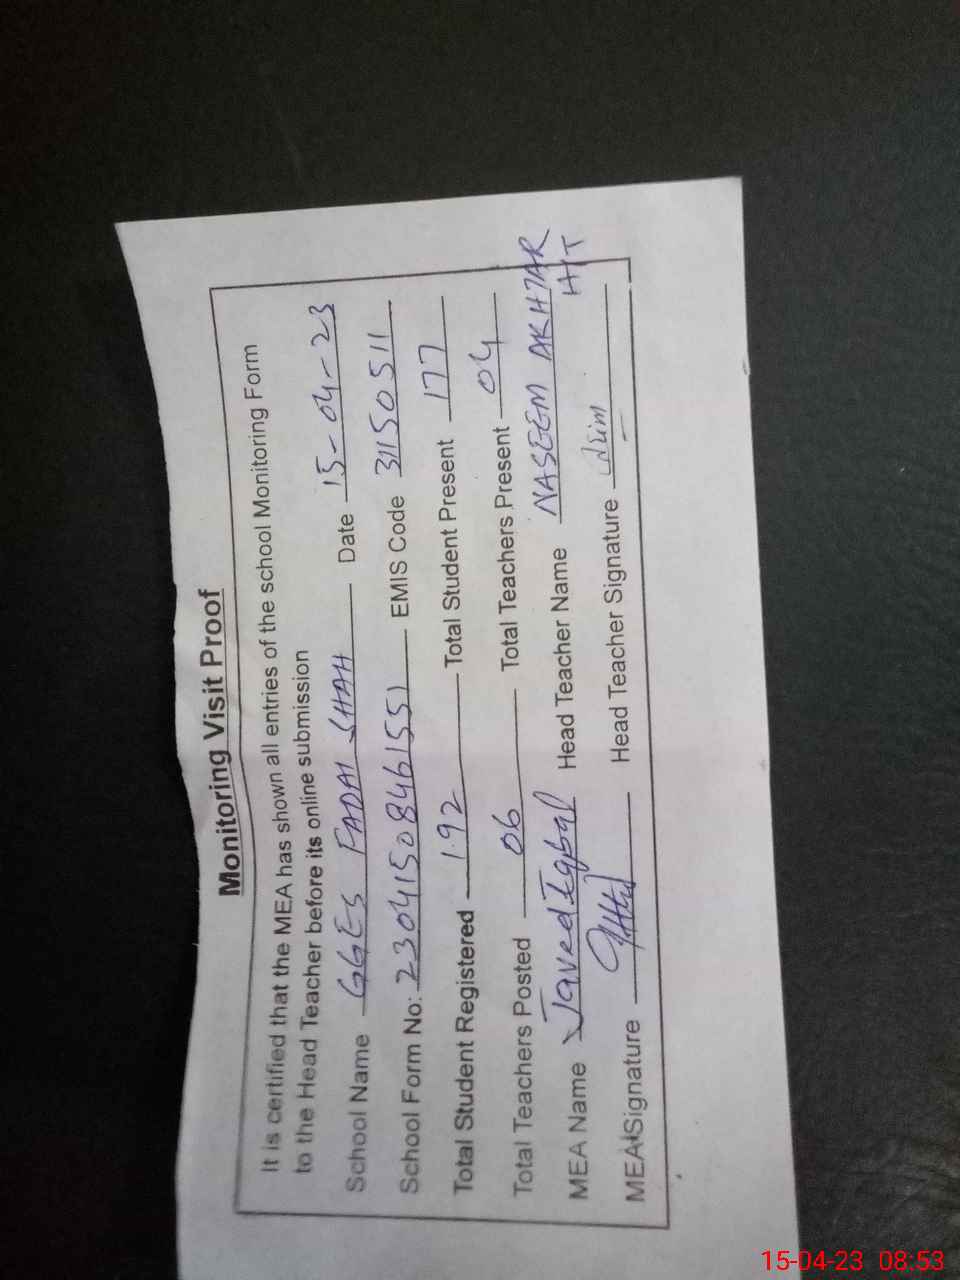 Monitoring Visit Proof
It is certified that the MEA has shown all entries of the school Monitoring Form
to the Head Teacher before its online submission
School Name GGES FADAI SHAH Date 15-04-23
School Form No: 2304150846155) EMIS Code 31150511
Total Student Registered 192 Total Student Present 177
Total Teachers Posted 06 Total Teachers Present 04
MEA Name Javed Iqbal Head Teacher Name NASEEM AKHTAR
H/T
MEA Signature Head Teacher Signature
15-04-23 08:53